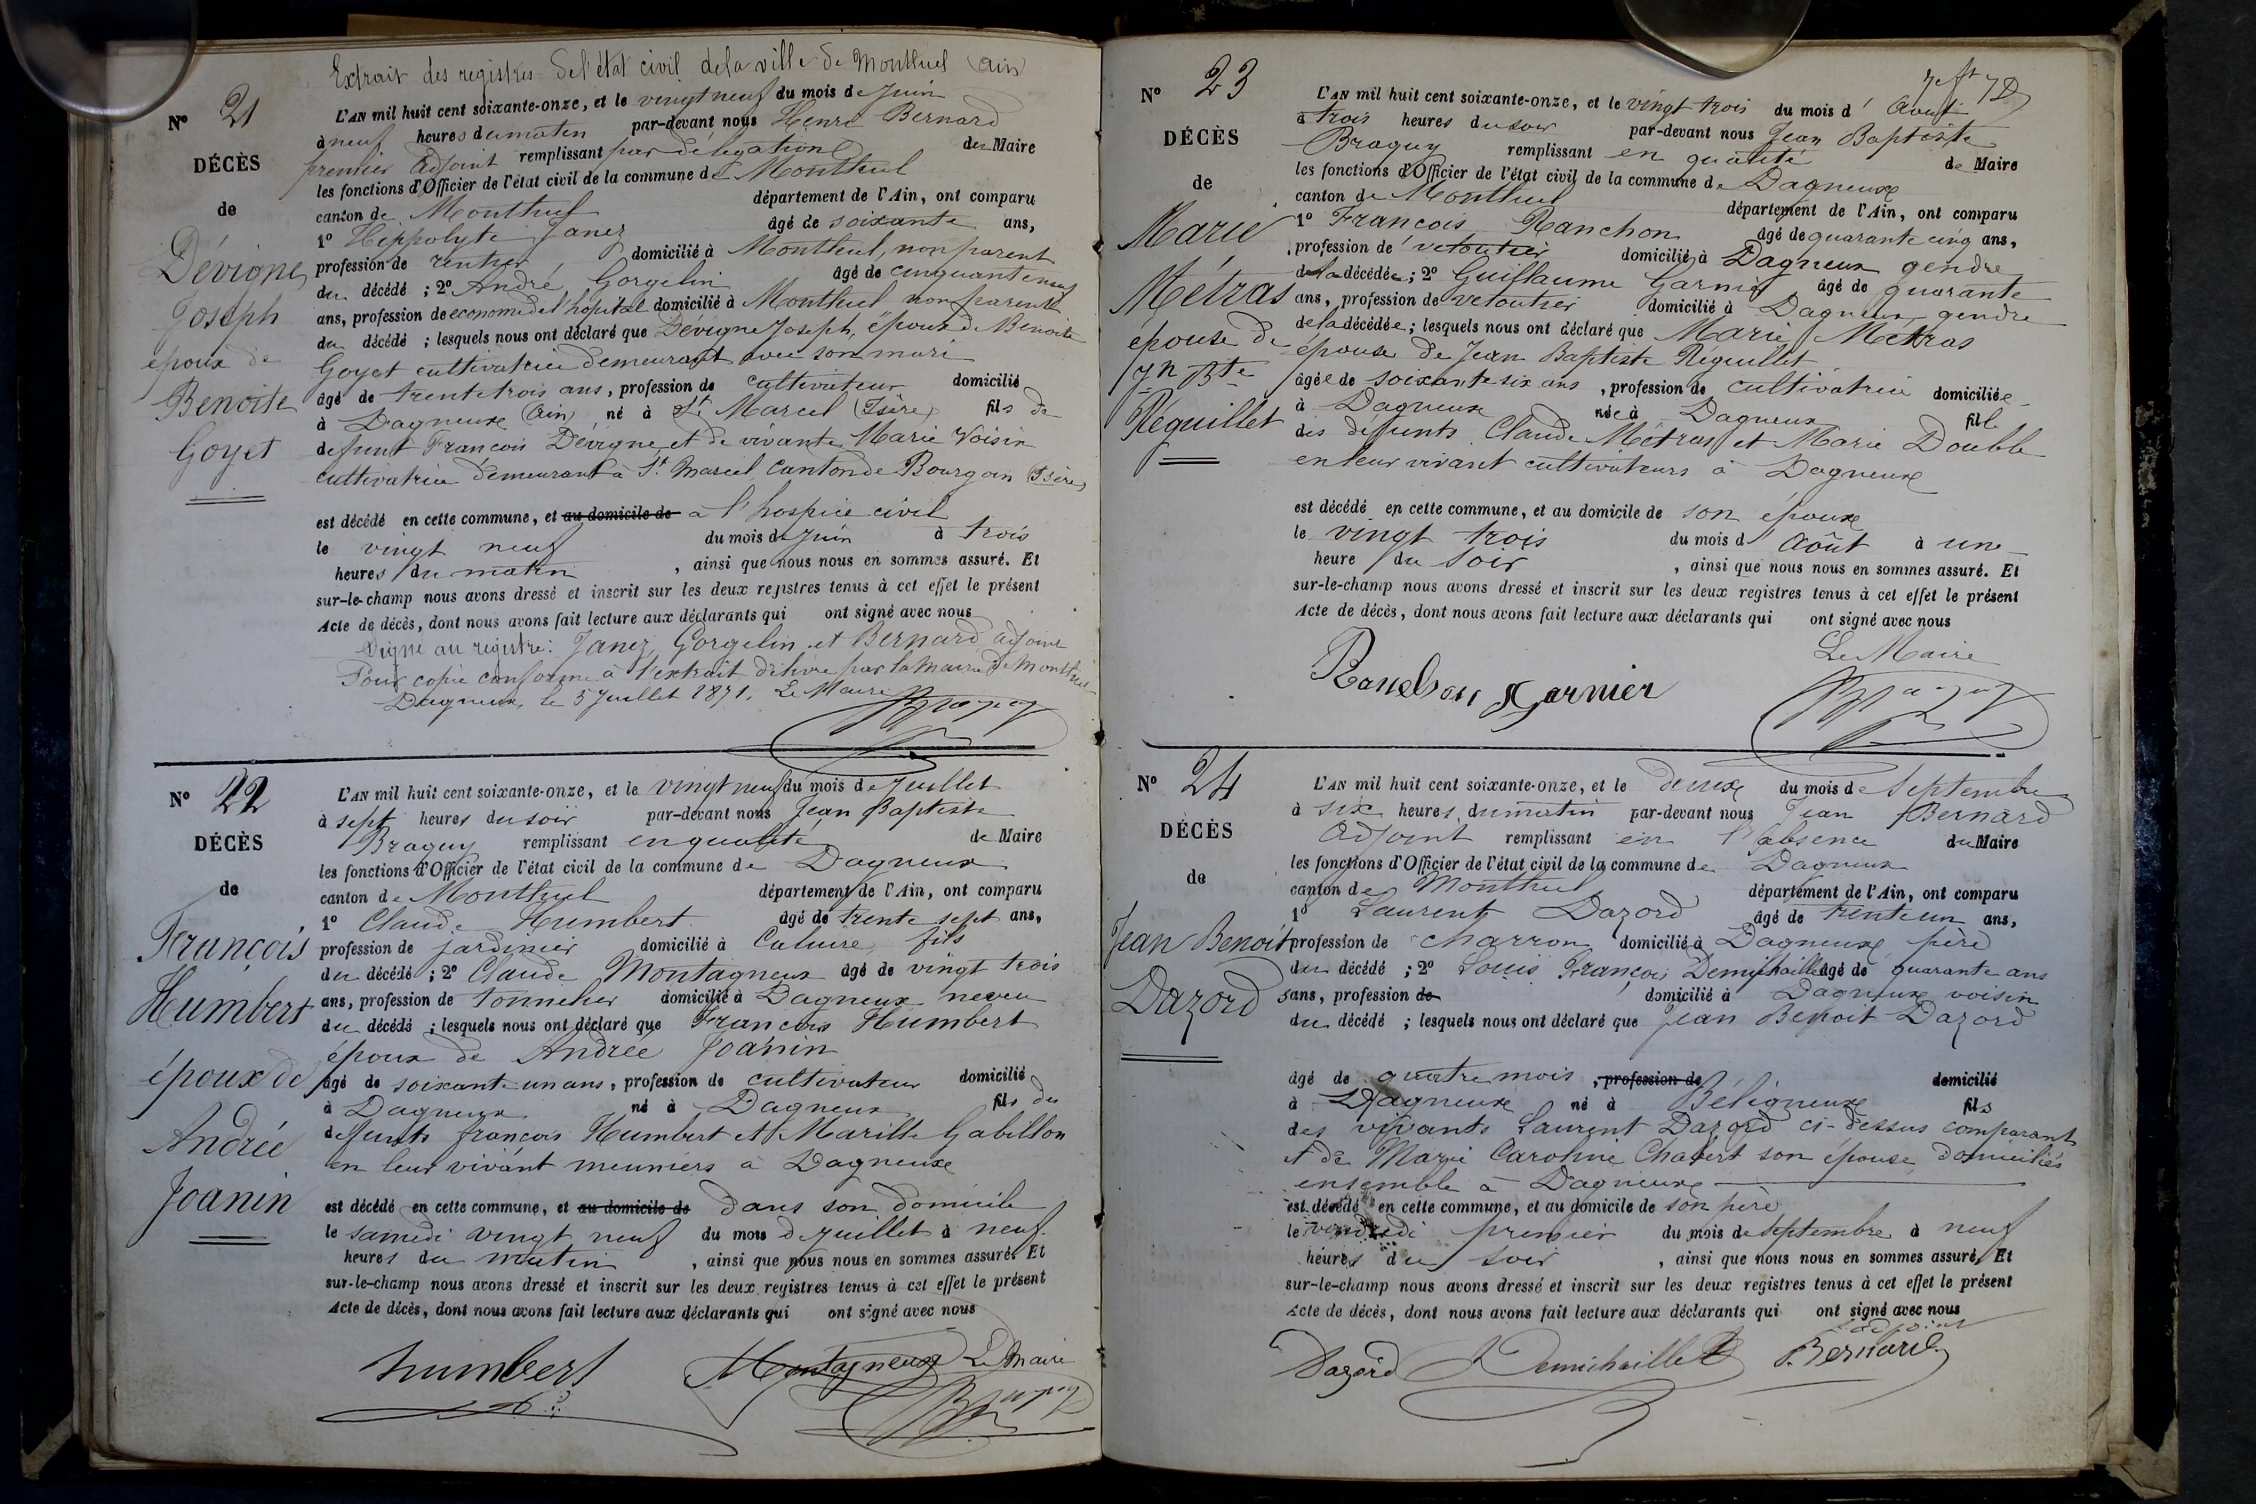 Extrait des registres de l'état civil de la ville de Montluel (Ain)
N° 21
DÉCÈS
de
Dévigne
Joseph
époux de
Benoite
Goyet
L'AN mil huit cent soixante-onze, et le vingt neuf du mois de Juin
à neuf heures du matin par-devant nous Henri Bernard
premier adjoint remplissant par délégation de Maire
les fonctions d'Officier de l'état civil de la commune de Montluel
canton de Montluel département de l'Ain, ont comparu
1° Hippolyte Janez âgé de soixante ans,
profession de rentier domicilié à Montluel, non parent
du décédé ; 2° André Gorgelin âgé de cinquante neuf
ans, profession de économe de l'hôpital domicilié à Montluel non parent
du décédé ; lesquels nous ont déclaré que Dévigne Joseph, époux de Benoite
Goyet cultivatrice demeurant avec son mari
âgé de trente trois ans, profession de cultivateur domicilié
à Dagneux (Ain) né à St Marcel (Isère) fils de
defunt François Dévigne et de vivante Marie Voisin
cultivatrice demeurant à St. Marcel, canton de Bourgoin (Isère)
est décédé en cette commune, et au domicile de à l'hospice civil
le vingt neuf du mois de Juin à trois
heures du matin , ainsi que nous nous en sommes assuré. Et
sur-le-champ nous avons dressé et inscrit sur les deux registres tenus à cet effet le présent
Acte de décès, dont nous avons fait lecture aux déclarants qui ont signé avec nous
Signé au registre : Janez, Gorgelin et Bernard, adjoint
Pour copie conforme à l'extrait délivré par la Mairie de Montluel
Dagneux, le 5 Juillet 1871. Le Maire
Braguy
N° 22
DÉCÈS
de
François
Humbert
époux de
Andrée
Joanin
L'AN mil huit cent soixante-onze, et le vingt neuf du mois de Juillet
à sept heures du soir par-devant nous Jean Baptiste
Braguy remplissant en qualité de Maire
les fonctions d'Officier de l'état civil de la commune de Dagneux
canton de Montluel département de l'Ain, ont comparu
1° Claude Humbert âgé de trente sept ans,
profession de jardinier domicilié à Caluire, fils
du décédé ; 2° Claude Montagneux âgé de vingt trois
ans, profession de tonnelier domicilié à Dagneux neveu
du décédé ; lesquels nous ont déclaré que François Humbert
époux de Andrée Joanin
âgé de soixante un ans, profession de cultivateur domicilié
à Dagneux né à Dagneux fils des
defunts françois Humbert et Mariette Gabillon
en leur vivant meuniers à Dagneux
est décédé en cette commune, et au domicile de dans son domicile
le samedi vingt neuf du mois de Juillet à neuf
heures du matin , ainsi que nous nous en sommes assuré. Et
sur-le-champ nous avons dressé et inscrit sur les deux registres tenus à cet effet le présent
Acte de décès, dont nous avons fait lecture aux déclarants qui ont signé avec nous
humbert Montagneux Le Maire
Braguy
N° 23
DÉCÈS
de
Marie
Métras
épouse de
Jn Bte
Réguillet
L'AN mil huit cent soixante-onze, et le vingt trois du mois d' Août
à trois heures du soir par-devant nous Jean Baptiste
Braguy remplissant en qualité de Maire
les fonctions d'Officier de l'état civil de la commune de Dagneux
canton de Montluel département de l'Ain, ont comparu
1° François Ranchon âgé de quarante cinq ans,
profession de voiturier domicilié à Dagneux gendre
de la décédée ; 2° Guillaume Garnier âgé de quarante
ans, profession de voiturier domicilié à Dagneux gendre
de la décédée ; lesquels nous ont déclaré que Marie Métras
épouse de Jean Baptiste Réguillet
âgée de soixante six ans , profession de cultivatrice domiciliée
à Dagneux née à Dagneux fille
des défunts Claude Métras et Marie Double
en leur vivant cultivateurs à Dagneux
est décédé en cette commune, et au domicile de son époux
le vingt trois du mois d' Août à une
heure du soir , ainsi que nous nous en sommes assuré. Et
sur-le-champ nous avons dressé et inscrit sur les deux registres tenus à cet effet le présent
Acte de décès, dont nous avons fait lecture aux déclarants qui ont signé avec nous
Le Maire
Ranchon Garnier Braguy
N° 24
DÉCÈS
de
Jean Benoit
Dazord
L'AN mil huit cent soixante-onze, et le deux du mois de Septembre
à six heures du matin par-devant nous Jean Bernard
Adjoint remplissant en l'absence du Maire
les fonctions d'Officier de l'état civil de la commune de Dagneux
canton de Montluel département de l'Ain, ont comparu
1° Laurent Dazord âgé de trente un ans,
profession de charron domicilié à Dagneux père
du décédé ; 2° Louis François Demichaillet âgé de quarante ans
ans, profession de domicilié à Dagneux voisin
du décédé ; lesquels nous ont déclaré que Jean Benoit Dazord
âgé de quatre mois , profession de domicilié
à Dagneux né à Béligneux fils
des vivants Laurent Dazord ci-dessus comparant
et de Marie Caroline Chabert son épouse, domiciliés
ensemble à Dagneux
est décédé en cette commune, et au domicile de son père
le vendredi premier du mois de Septembre à neuf
heures du soir , ainsi que nous nous en sommes assuré. Et
sur-le-champ nous avons dressé et inscrit sur les deux registres tenus à cet effet le présent
Acte de décès, dont nous avons fait lecture aux déclarants qui ont signé avec nous
L'adjoint
Dazord Demichaillet Bernard